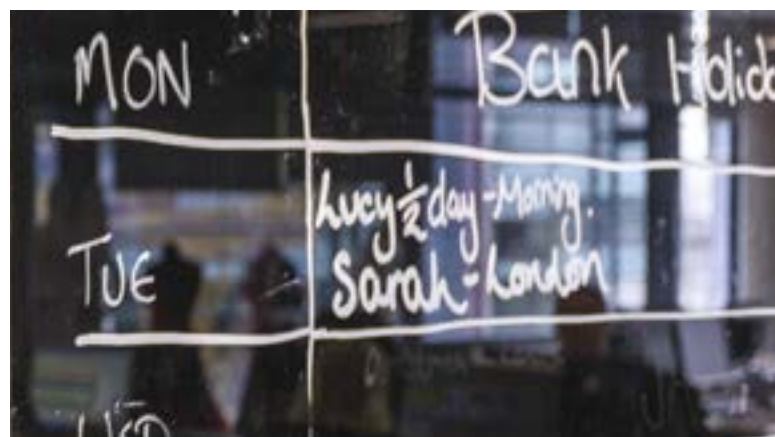 MON
Bank Holida
TUE
Lucy ½ day - Morning.
Sarah - London
WED